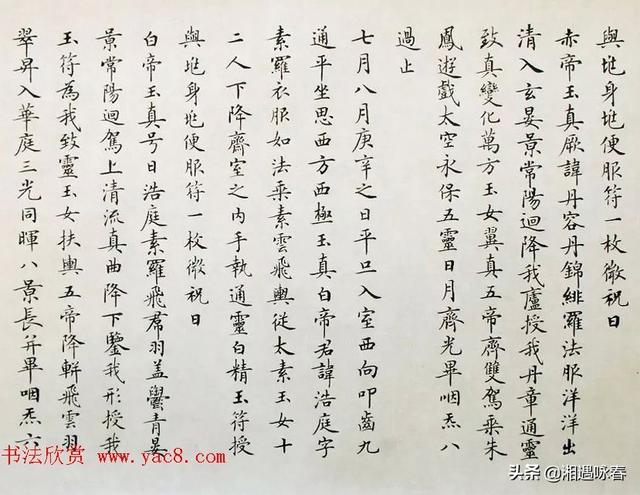 與兆身兆便服符一枚微祝曰
赤帝玉真厥諱丹容丹錦緋羅法服洋洋出
清入玄晏景常陽迴降我廬授我丹章通靈
致真變化萬方玉女翼真五帝齊雙駕乘朱
鳳遊戲太空永保五靈日月齊光畢咽炁八
過止
七月八月庚辛之日平旦入室西向叩齒九
通平坐思西方西極玉真白帝君諱浩庭字
素羅衣服如法乘素雲飛輿從太素玉女十
二人下降齋室之內手執通靈白精玉符授
與兆身兆便服符一枚微祝曰
白帝玉真号曰浩庭素羅飛帬羽盖鬱青晏
景常陽迴駕上清流真曲降下鑒我形授我
玉符為我致靈玉女扶輿五帝降軿飛雲羽
翠昇入華庭三光同暉八景長并畢咽炁六
书法欣赏 www.yac8.com
头条 @湘遇咏春